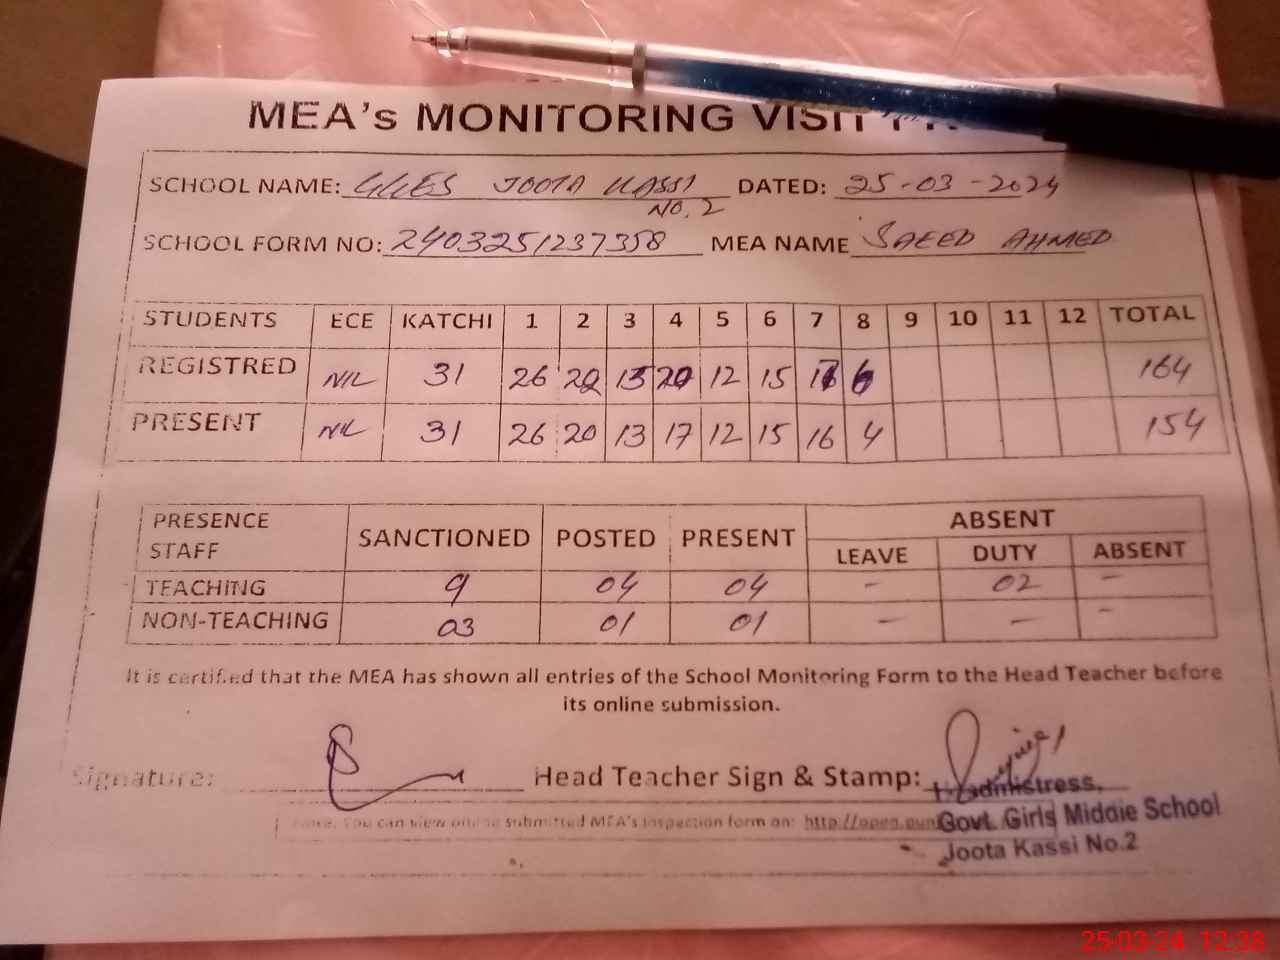 MEA's MONITORING VISIT
SCHOOL NAME: GGES JOOTA KASSI DATED: 25-03-2024
NO. 2
SCHOOL FORM NO: 2403251237358 MEA NAME SAEED AHMED
STUDENTS ECE KATCHI 1 2 3 4 5 6 7 8 9 10 11 12 TOTAL
REGISTRED NIL 31 26 20 15 20 12 15 6 164
PRESENT NIL 31 26 20 13 17 12 15 16 4 154
PRESENCE STAFF SANCTIONED POSTED PRESENT ABSENT
LEAVE DUTY ABSENT
TEACHING 9 04 04 - 02 -
NON-TEACHING 03 01 01 - - -
It is certified that the MEA has shown all entries of the School Monitoring Form to the Head Teacher before
its online submission.
Signature: Head Teacher Sign & Stamp:
Headmistress,
You can view online submitted MEA's inspection form on: http://open.
Govt. Girls Middle School
Joota Kassi No.2
25-03-24 12:38